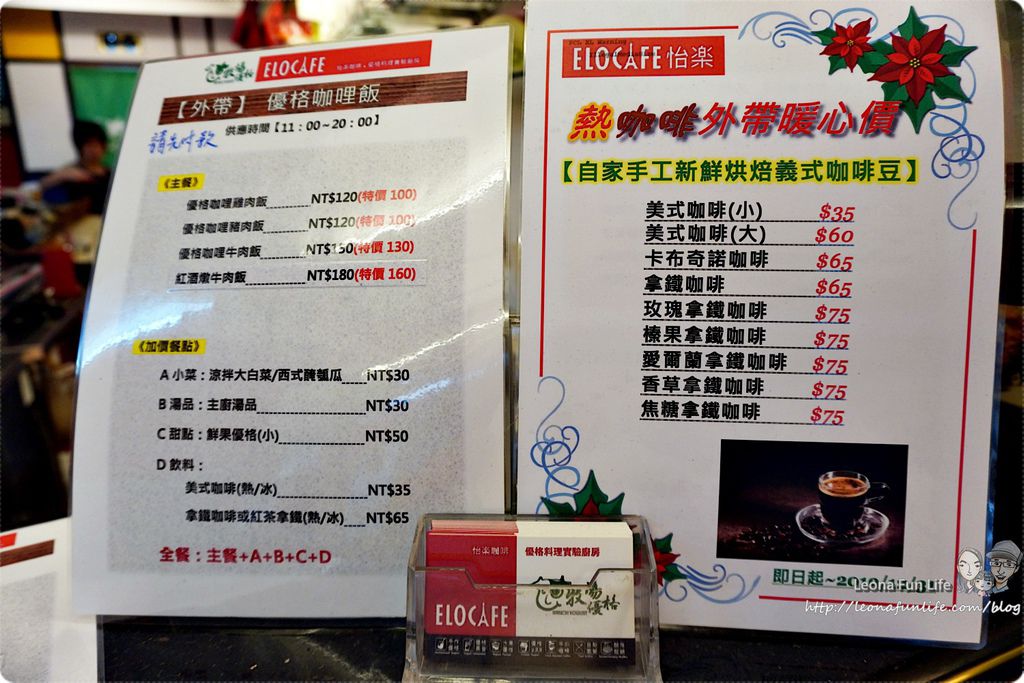 ELOCAFE 怡楽咖啡、優格料理實驗廚房
【外帶】 優格咖哩飯
供應時間【11：00~20：00】
請先付款
《主餐》
優格咖哩雞肉飯 NT$120(特價 100)
優格咖哩豬肉飯 NT$120(特價 100)
優格咖哩牛肉飯 NT$150(特價 130)
紅酒燉牛肉飯 NT$180(特價 160)
《加價餐點》
A 小菜：涼拌大白菜/西式醃瓠瓜 NT$30
B 湯品：主廚湯品 NT$30
C 甜點：鮮果優格(小) NT$50
D 飲料：
美式咖啡(熱/冰) NT$35
拿鐵咖啡或紅茶拿鐵(熱/冰) NT$65
全餐：主餐+A+B+C+D
PCL XL Warning
ELOCAFE 怡楽
熱咖啡外帶暖心價
【自家手工新鮮烘焙義式咖啡豆】
美式咖啡(小) $35
美式咖啡(大) $60
卡布奇諾咖啡 $65
拿鐵咖啡 $65
玫瑰拿鐵咖啡 $75
榛果拿鐵咖啡 $75
愛爾蘭拿鐵咖啡 $75
香草拿鐵咖啡 $75
焦糖拿鐵咖啡 $75
即日起~
怡楽咖啡 優格料理實驗廚房
牧場優格
ELOCAFE
Leona Fun Life
http://leonafunlife.com/blog